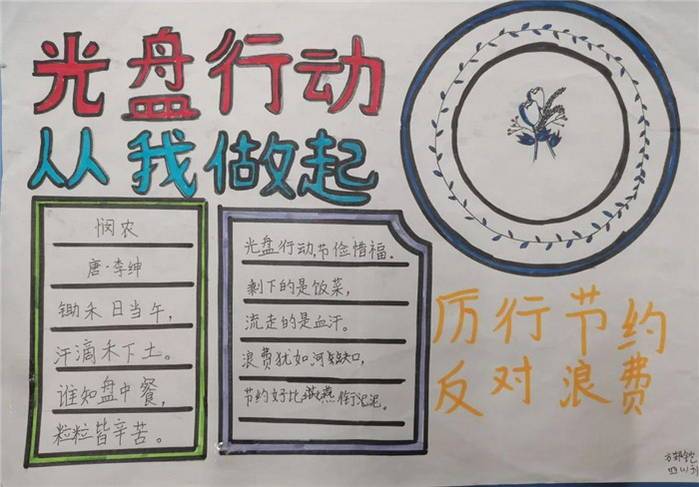 光盘行动
从我做起
悯农
唐·李绅
锄禾日当午,
汗滴禾下土。
谁知盘中餐,
粒粒皆辛苦。
光盘行动,节俭惜福.
剩下的是饭菜,
流走的是血汗。
浪费犹如河缺口,
节约好比燕衔泥。
厉行节约
反对浪费